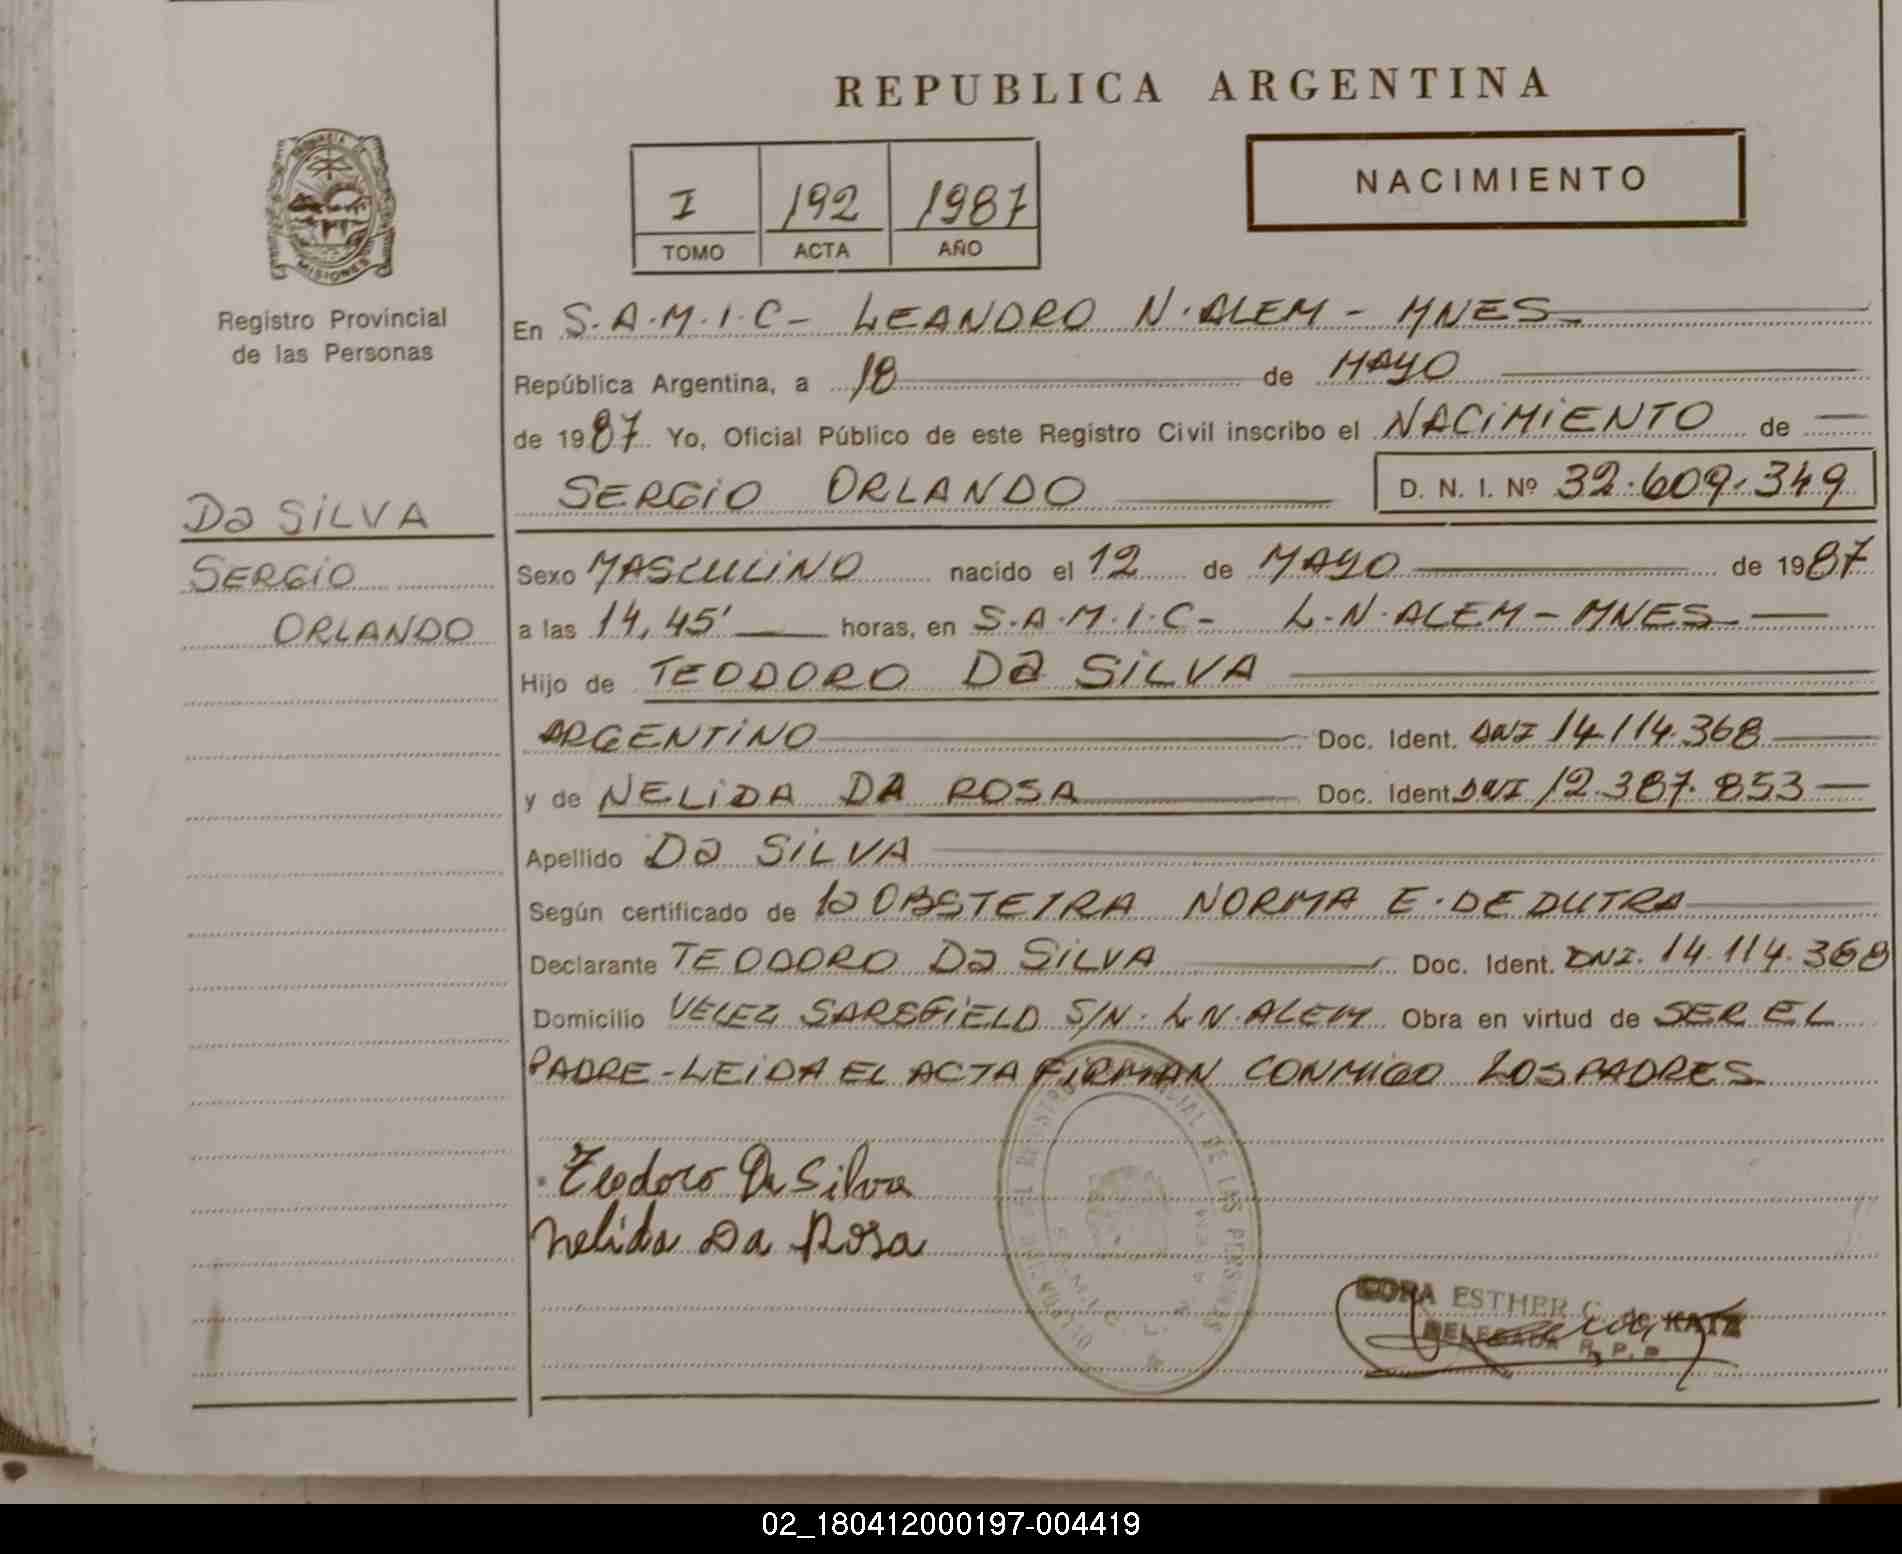 REPUBLICA ARGENTINA
PROVINCIA DE
MISIONES
Registro Provincial
de las Personas
NACIMIENTO
I 192 1987
TOMO ACTA AÑO
En S.A.M.I.C- LEANDRO N. ALEM - MNES
República Argentina, a 18 de MAYO
de 1987 Yo, Oficial Público de este Registro Civil inscribo el NACIMIENTO de
SERGIO ORLANDO D. N. I. Nº 32.609.349
Da SILVA
SERGIO
ORLANDO
Sexo MASCULINO nacido el 12 de MAYO de 1987
a las 14,45' horas, en S.A.M.I.C- L.N.ALEM-MNES
Hijo de TEODORO Da SILVA
ARGENTINO Doc. Ident. DNI 14.114.368
y de NELIDA DA ROSA Doc. Ident. DNI 12.387.853
Apellido Da SILVA
Según certificado de la OBSTETRA NORMA E. DE DUTRA
Declarante TEODORO Da SILVA Doc. Ident. DNI. 14.114.368
Domicilio VELEZ SARSFIELD S/N. L.N.ALEM Obra en virtud de SER EL
PADRE-LEIDA EL ACTA FIRMAN CONMIGO LOS PADRES
Teodoro Da Silva
Nelida Da Rosa
REGISTRO PROVINCIAL DE LAS PERSONAS
ESTHER C. de KATZ
DELEGADA R. P. P.
02_180412000197-004419